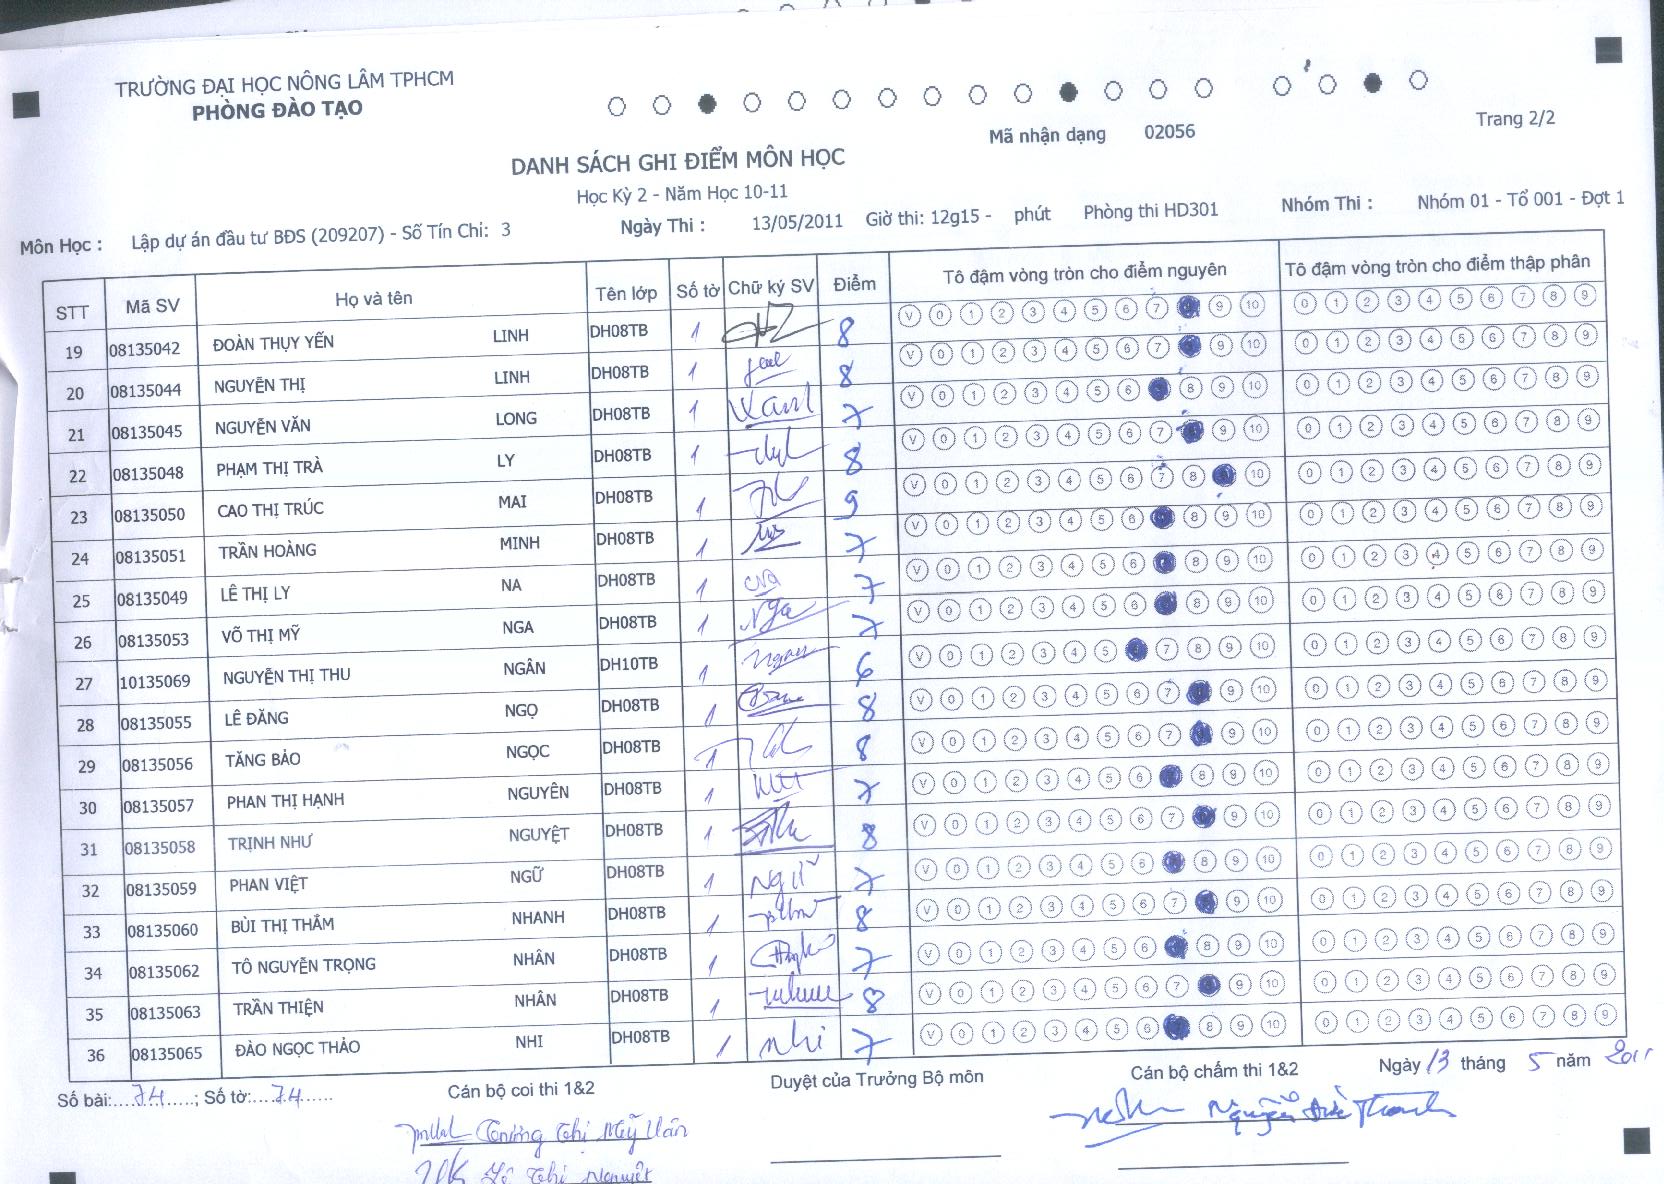 TRƯỜNG ĐẠI HỌC NÔNG LÂM TPHCM
PHÒNG ĐÀO TẠO
Mã nhận dạng 02056
Trang 2/2
DANH SÁCH GHI ĐIỂM MÔN HỌC
Học Kỳ 2 - Năm Học 10-11
Môn Học : Lập dự án đầu tư BĐS (209207) - Số Tín Chỉ: 3 Ngày Thi : 13/05/2011 Giờ thi: 12g15 - phút Phòng thi HD301 Nhóm Thi : Nhóm 01 - Tổ 001 - Đợt 1
STT Mã SV Họ và tên Tên lớp Số tờ Chữ ký SV Điểm Tô đậm vòng tròn cho điểm nguyên Tô đậm vòng tròn cho điểm thập phân
19 08135042 ĐOÀN THỤY YẾN LINH DH08TB 1 8 V 0 1 2 3 4 5 6 7 9 10 0 1 2 3 4 5 6 7 8 9
20 08135044 NGUYỄN THỊ LINH DH08TB 1 8 V 0 1 2 3 4 5 6 7 9 10 0 1 2 3 4 5 6 7 8 9
21 08135045 NGUYỄN VĂN LONG DH08TB 1 7 V 0 1 2 3 4 5 6 8 9 10 0 1 2 3 4 5 6 7 8 9
22 08135048 PHẠM THỊ TRÀ LY DH08TB 1 8 V 0 1 2 3 4 5 6 7 9 10 0 1 2 3 4 5 6 7 8 9
23 08135050 CAO THỊ TRÚC MAI DH08TB 1 9 V 0 1 2 3 4 5 6 7 8 10 0 1 2 3 4 5 6 7 8 9
24 08135051 TRẦN HOÀNG MINH DH08TB 1 7 V 0 1 2 3 4 5 6 8 9 10 0 1 2 3 4 5 6 7 8 9
25 08135049 LÊ THỊ LY NA DH08TB 1 7 V 0 1 2 3 4 5 6 8 9 10 0 1 2 3 4 5 6 7 8 9
26 08135053 VÕ THỊ MỸ NGA DH08TB 1 Nga 7 V 0 1 2 3 4 5 6 8 9 10 0 1 2 3 4 5 6 7 8 9
27 10135069 NGUYỄN THỊ THU NGÂN DH10TB 1 Ngân 6 V 0 1 2 3 4 5 7 8 9 10 0 1 2 3 4 5 6 7 8 9
28 08135055 LÊ ĐĂNG NGỌ DH08TB 1 8 V 0 1 2 3 4 5 6 7 9 10 0 1 2 3 4 5 6 7 8 9
29 08135056 TĂNG BẢO NGỌC DH08TB 1 8 V 0 1 2 3 4 5 6 7 9 10 0 1 2 3 4 5 6 7 8 9
30 08135057 PHAN THỊ HẠNH NGUYÊN DH08TB 1 7 V 0 1 2 3 4 5 6 8 9 10 0 1 2 3 4 5 6 7 8 9
31 08135058 TRỊNH NHƯ NGUYỆT DH08TB 1 8 V 0 1 2 3 4 5 6 7 9 10 0 1 2 3 4 5 6 7 8 9
32 08135059 PHAN VIỆT NGỮ DH08TB 1 Ngữ 7 V 0 1 2 3 4 5 6 8 9 10 0 1 2 3 4 5 6 7 8 9
33 08135060 BÙI THỊ THẮM NHANH DH08TB 1 8 V 0 1 2 3 4 5 6 7 9 10 0 1 2 3 4 5 6 7 8 9
34 08135062 TÔ NGUYỄN TRỌNG NHÂN DH08TB 1 7 V 0 1 2 3 4 5 6 8 9 10 0 1 2 3 4 5 6 7 8 9
35 08135063 TRẦN THIỆN NHÂN DH08TB 1 8 V 0 1 2 3 4 5 6 7 9 10 0 1 2 3 4 5 6 7 8 9
36 08135065 ĐÀO NGỌC THẢO NHI DH08TB 1 nhi 7 V 0 1 2 3 4 5 6 8 9 10 0 1 2 3 4 5 6 7 8 9
Số bài:....74.....; Số tờ:....74...... Cán bộ coi thi 1&2 Duyệt của Trưởng Bộ môn Cán bộ chấm thi 1&2 Ngày 13 tháng 5 năm 2011
Trương Thị Mỹ Vân
Lê Thị Nguyệt